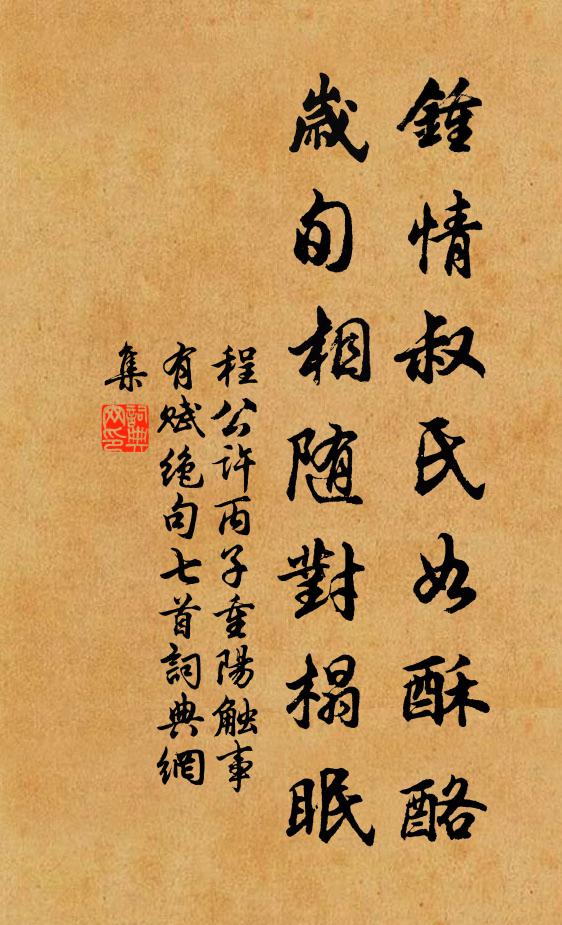 鍾情叔氏如酥酪
歲旬相随對榻眠
程公许丙子重陽触事
有赋绝句七首詞典網
集
詞典網印